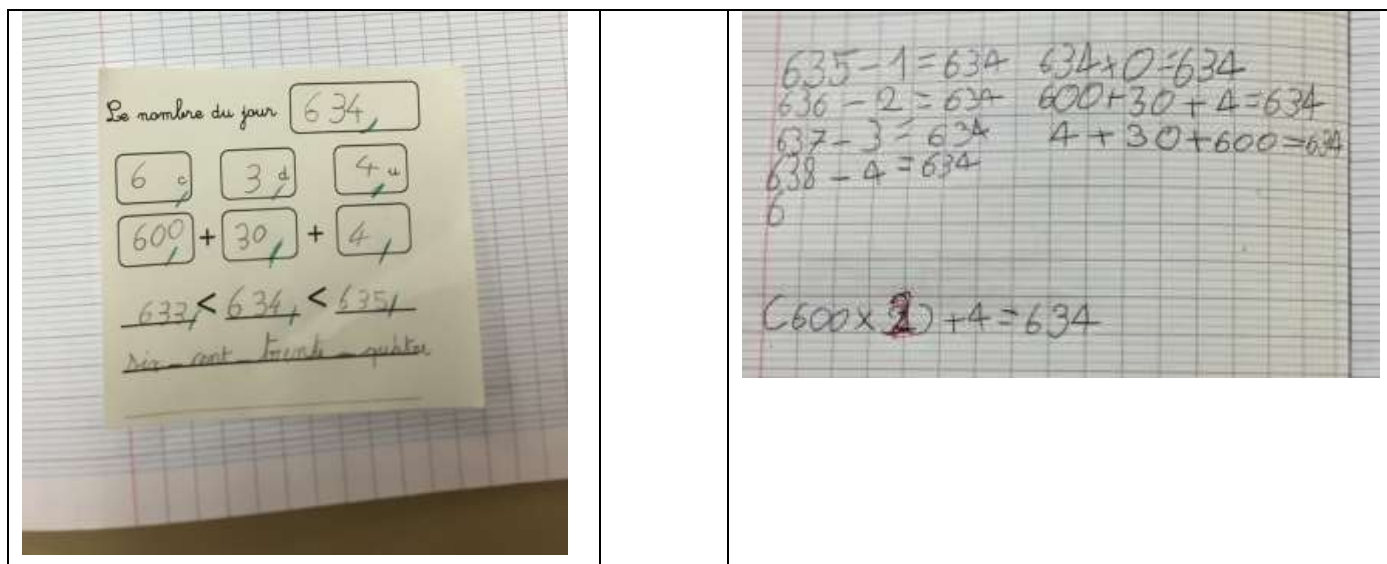 Le nombre du jour 634
6 c 3 d 4 u
600 + 30 + 4
633 < 634 < 635
six-cent-trente-quatre
635-1=634 634+0=634
636-2=634 600+30+4=634
637-3=634 4+30+600=634
638-4=634
6
(600x ) +4=634